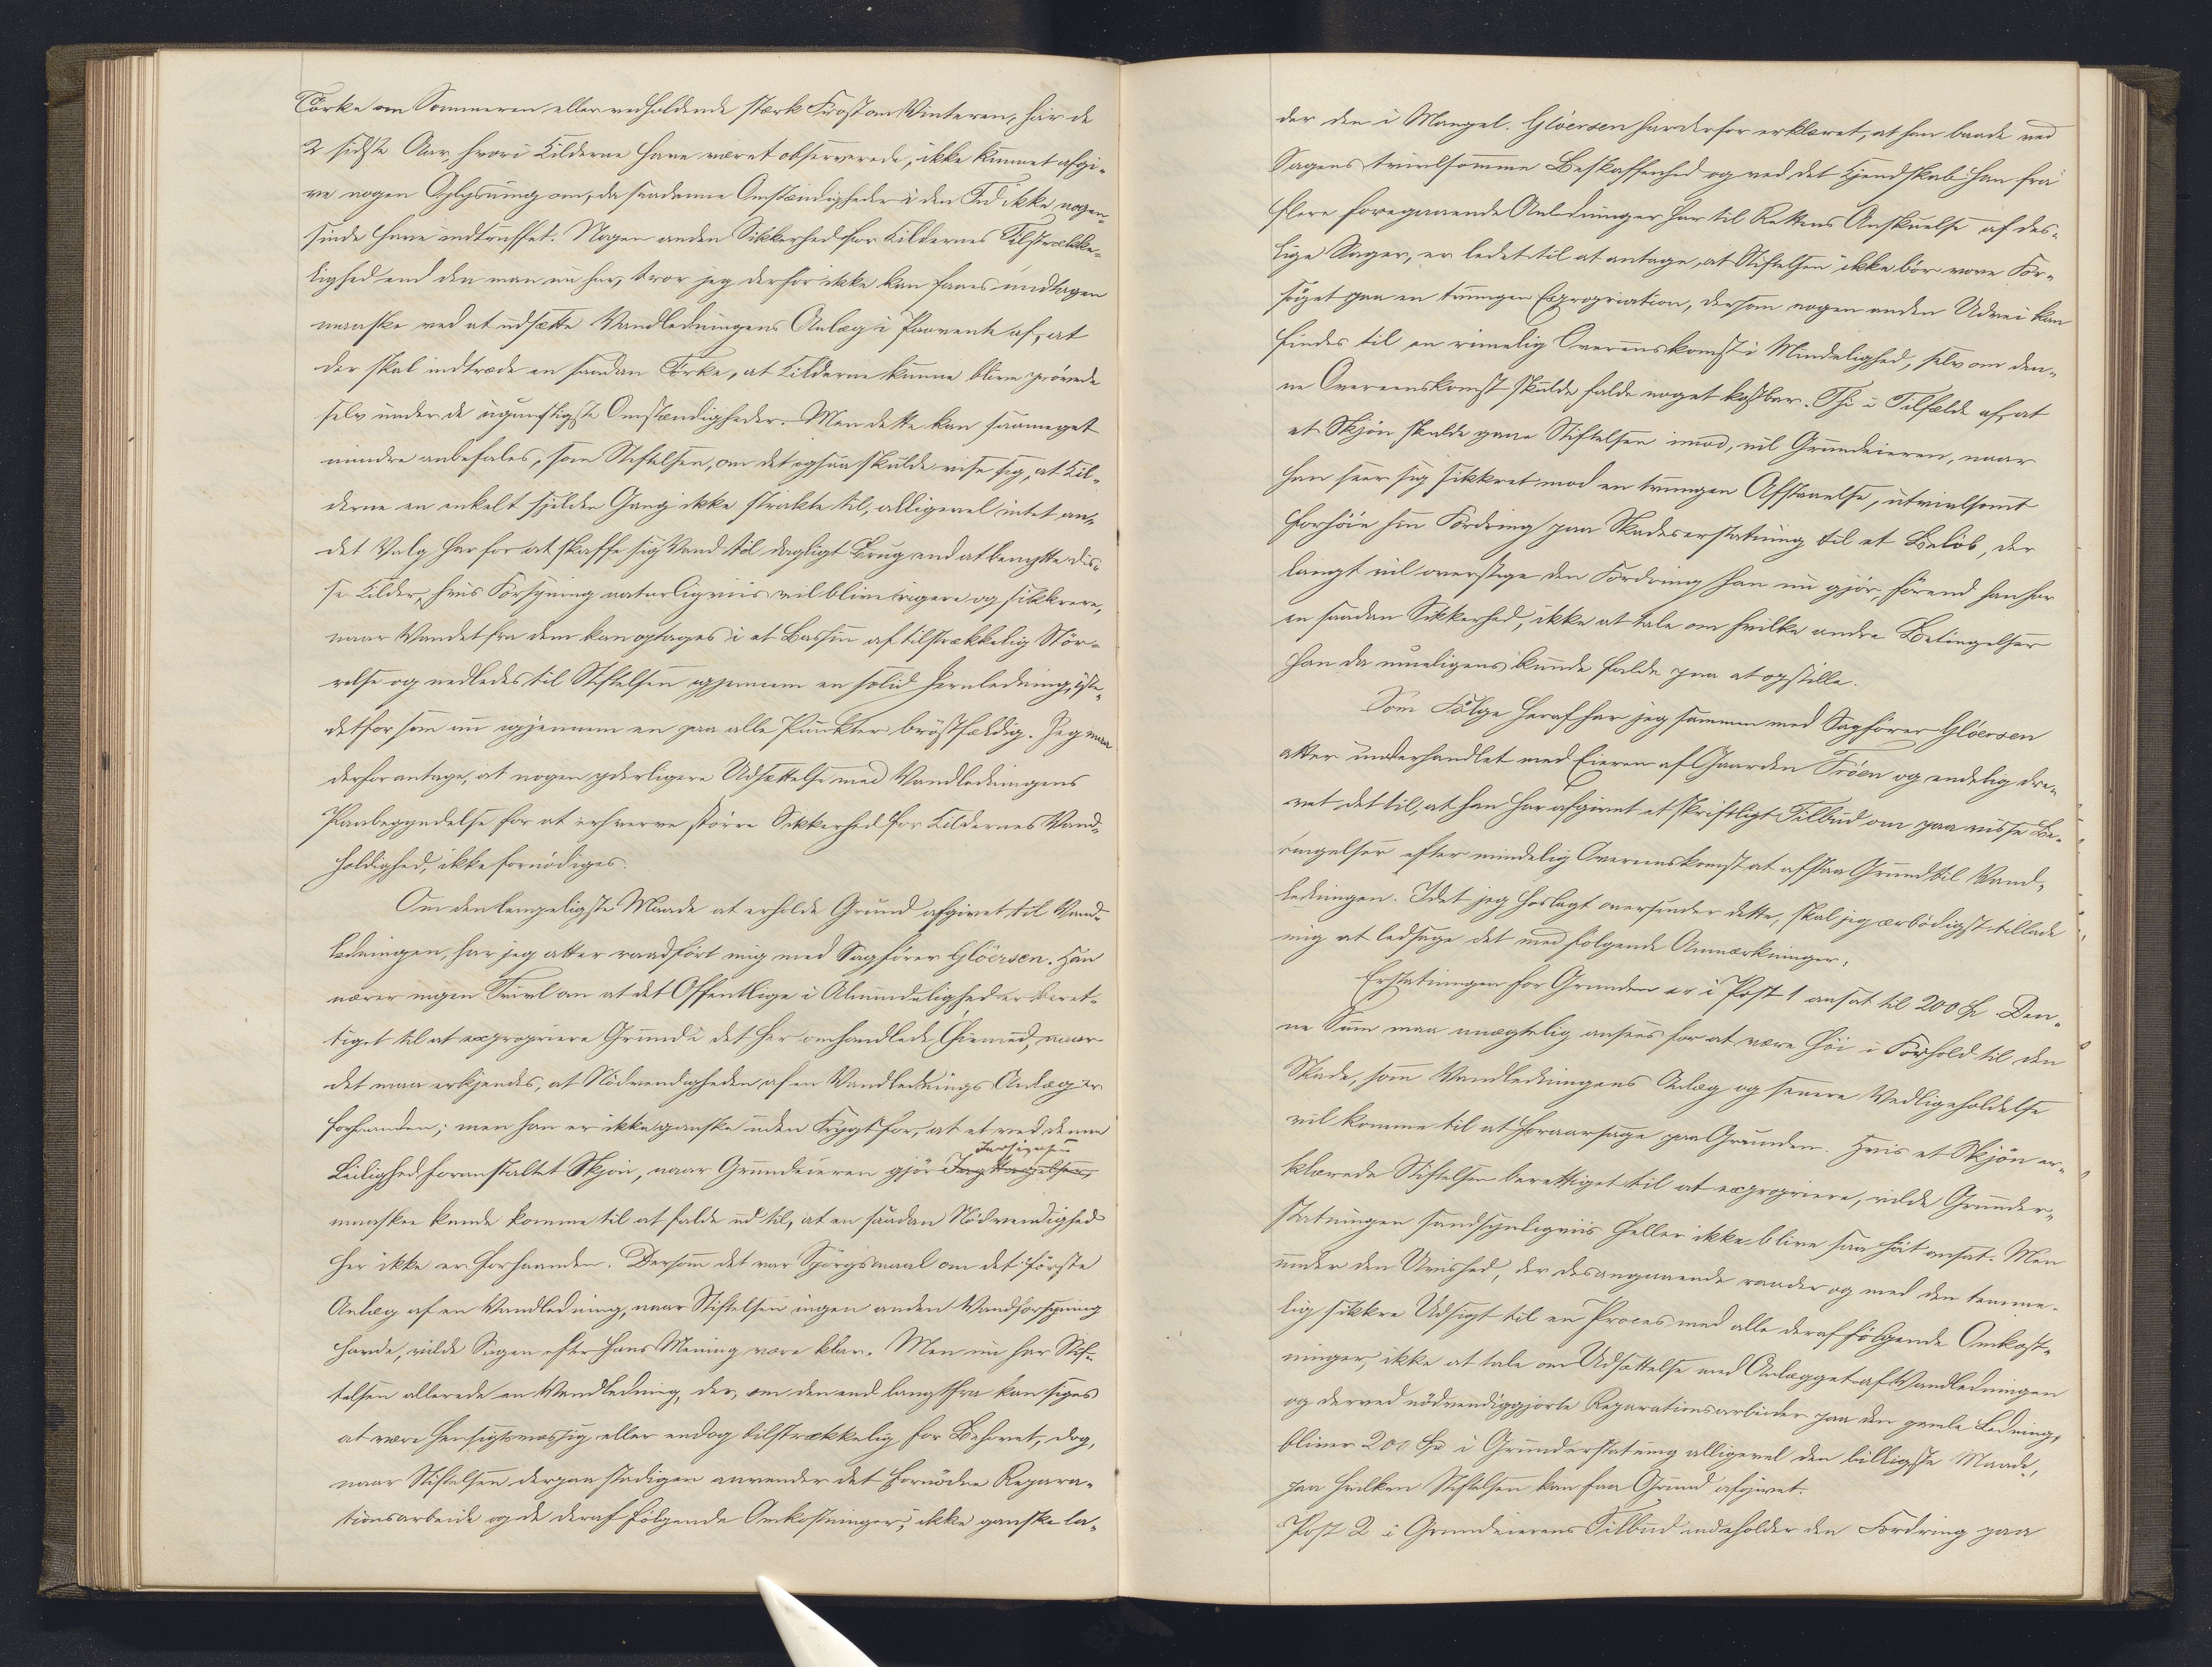 Tørke om Sommeren eller vedholdende stærk Frost om Vinteren, har de
2 sidste Aar, hvori Kilderne have været observerede, ikke kunnet afgi-
ve nogen Oplysning om, da saadanne Omstændigheder i den Tid ikke nogen-
sinde have indtruffet. Nogen anden Sikkerhed for Kildernes Tilstrække-
lighed end den man nu har, tror jeg derfor ikke kan faaes undtagen
maaske ved at udsætte Vandledningens Anlæg i Paavente af, at
der skal indtræde en saadan Tørke, at Kilderne kunne blive prøvede
selv under de ugunstigste Omstændigheder. Men dette kan saameget
mindre anbefales, som Stiftelsen, om det ogsaa skulde vise sig, at Kil-
derne en enkelt sjelden Gang ikke strakte til, alligevel intet an-
det Valg har for at skaffe sig Vand til dagligt Brug end at benytte dis-
se Kilder, hvis Forsyning naturligviis vil blive rigere og sikkrere,
naar Vandet fra dem kan optages i et Bassin af tilstrækkelig Stør-
relse og nedledes til Stiftelsen gjennem en solid Jernledning, iste-
detfor som nu igjennem en paa alle Punkter brøstfældig. Jeg maa
derfor antage, at nogen yderligere Udsættelse med Vandledningens
Paabegyndelse for at erhverve større Sikkerhed for Kildernes Vand-
holdighed, ikke fornødiges.
Om den lempeligste Maade at erholde Grund afgivet til Vand-
ledningen, har jeg atter raadført mig med Sagfører Gløersen. Han
nærer ingen Tvivl om at det Offentlige i Almindelighed er beret-
tiget til at expropriere Grund i det her omhandlede Øiemed, naar
det maa erkjendes, at Nødvendigheden af en Vandlednings Anlæg er
forhaanden; men han er ikke ganske uden Frygt for, at et ved denne
Indsigelser
Leilighed foranstaltet Skjøn, naar Grundeieren gjør Iagttagelser,
maaskee kunde komme til at falde ud til, at en saadan Nødvendighed
her ikke er forhaanden. Dersom det var Spørgsmaal om det første
Anlæg af en Vandledning, naar Stiftelsen ingen anden Vandforsyning
havde, vilde Sagen efter hans Mening være klar. Men nu har Stif-
telsen allerede en Vandledning, der, om den end langtfra kan siges
at være hensigtsmæssig eller endog tilstrækkelig for Behovet, dog,
naar Stiftelsen derpaa stadigen anvender det fornødne Repara-
tionsarbeide og de deraf følgende Omkostninger, ikke ganske la-
der den i Mangel. Gløersen har derfor erklæret, at han baade ved
Sagens tvivlsomme Beskaffenhed og ved det Kjendskab han fra
flere foregaaende Anledninger har til Rettens Anskuelse af des-
lige Sager, er ledet til at antage, at Stiftelsen ikke bør vove For-
søget paa en tvungen Expropriation, dersom nogen anden Udvei kan
findes til en rimelig Overenskomst i Mindelighed, selv om den-
ne Overeenskomst skulde falde noget kostbar. Thi i Tilfælde af, at
et Skjøn skulde gaae Stiftelsen imod, vil Grundeieren, naar
han seer sig sikkret mod en tvungen Afstaaelse, utvivlsomt
forhøie sin Fordring paa Skadeserstatning til et Beløb, der
langt vil overstige den Fordring han nu gjør, førend han har
en saadan Sikkerhed, ikke at tale om hvilke andre Betingelser
han da rimeligens kunde falde paa at opstille.
Som Følge heraf har jeg sammen med Sagfører Gløersen
atter underhandlet med Eieren af Gaarden Frøen og endelig dre-
vet det til, at han har afgivet et skriftligt Tilbud om paa visse Be-
tingelser efter mindelig Overeenskomst at afstaa Grund til Vand-
ledningen. Idet jeg hoslagt oversender dette, skal jeg ærbødigst tillade
mig at ledsage det med følgende Anmærkninger.
Erstatningen for Grunden er i Post 1 ansat til 200 Spd. Den-
ne Sum maa unægtelig ansees for at være høi i Forhold til den
Skade, som Vandledningens Anlæg og senere Vedligeholdelse
vil komme til at foraarsage paa Grunden. Hvis et Skjøn er-
klærede Stiftelsen berettiget til at expropriere, vilde Grunder-
statningen sandsynligviis heller ikke blive saa høit ansat. Men
under den Uvished, der desangaaende raader og med den temme-
lig sikkre Udsigt til en Proces med alle deraf følgende Omkost-
ninger, ikke at tale om Udsættelse med Anlægget af Vandledningen
og derved nødvendiggjorte Reparationsarbeider paa den gamle Ledning,
bliver 200 Spd i Grunderstatning alligevel den billigste Maade,
paa hvilken Stiftelsen kan faa Grund afgivet.
Post 2 i Grundeierens Tilbud indeholder den Fordring paa